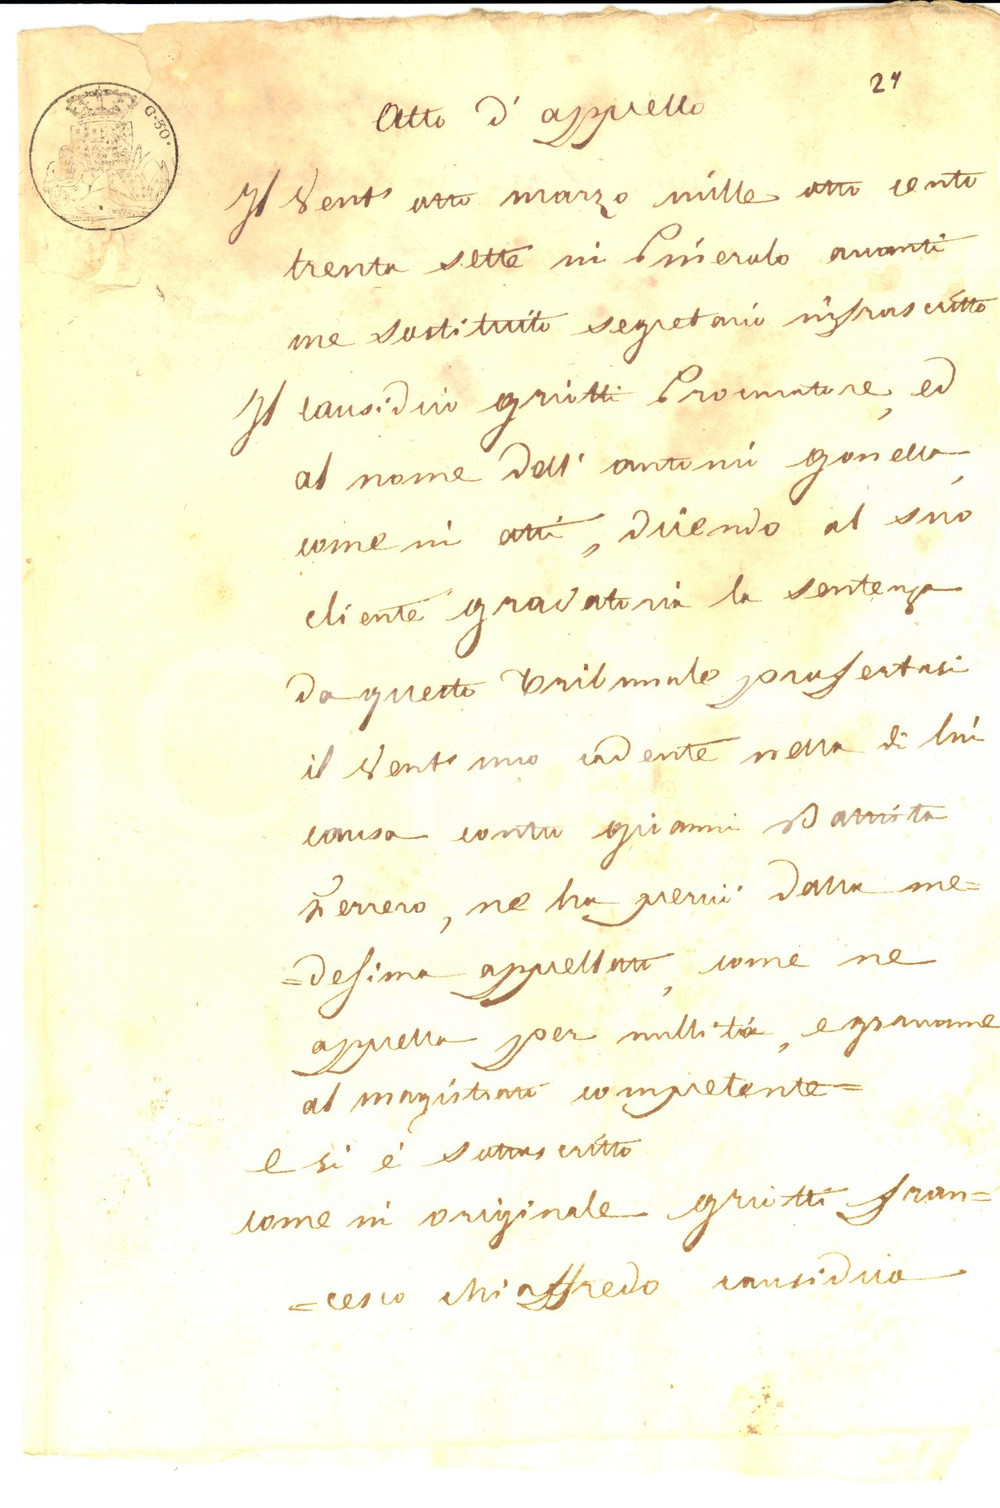 24
C. 50.
Atto d'appello
Il vent'otto marzo mille otto cento
trenta sette in Pinerolo avanti
me sostituito segretario infrascritto
Il causidico Griotti Procuratore, ed
al nome dell' Antonio Gonella,
come in atti, dicendo al suo
cliente gravatoria la sentenza
da questo Tribunale profertasi
il vent'uno cadente nella di lui
causa contro Gioanni Battista
Ferrero, ne ha perciò dalla me=
=desima appellato, come ne
appella per nullità, e gravame
al magistrato competente=
e si è sottoscritto
come in originale Griotti Fran=
=cesco Chiaffredo causidico